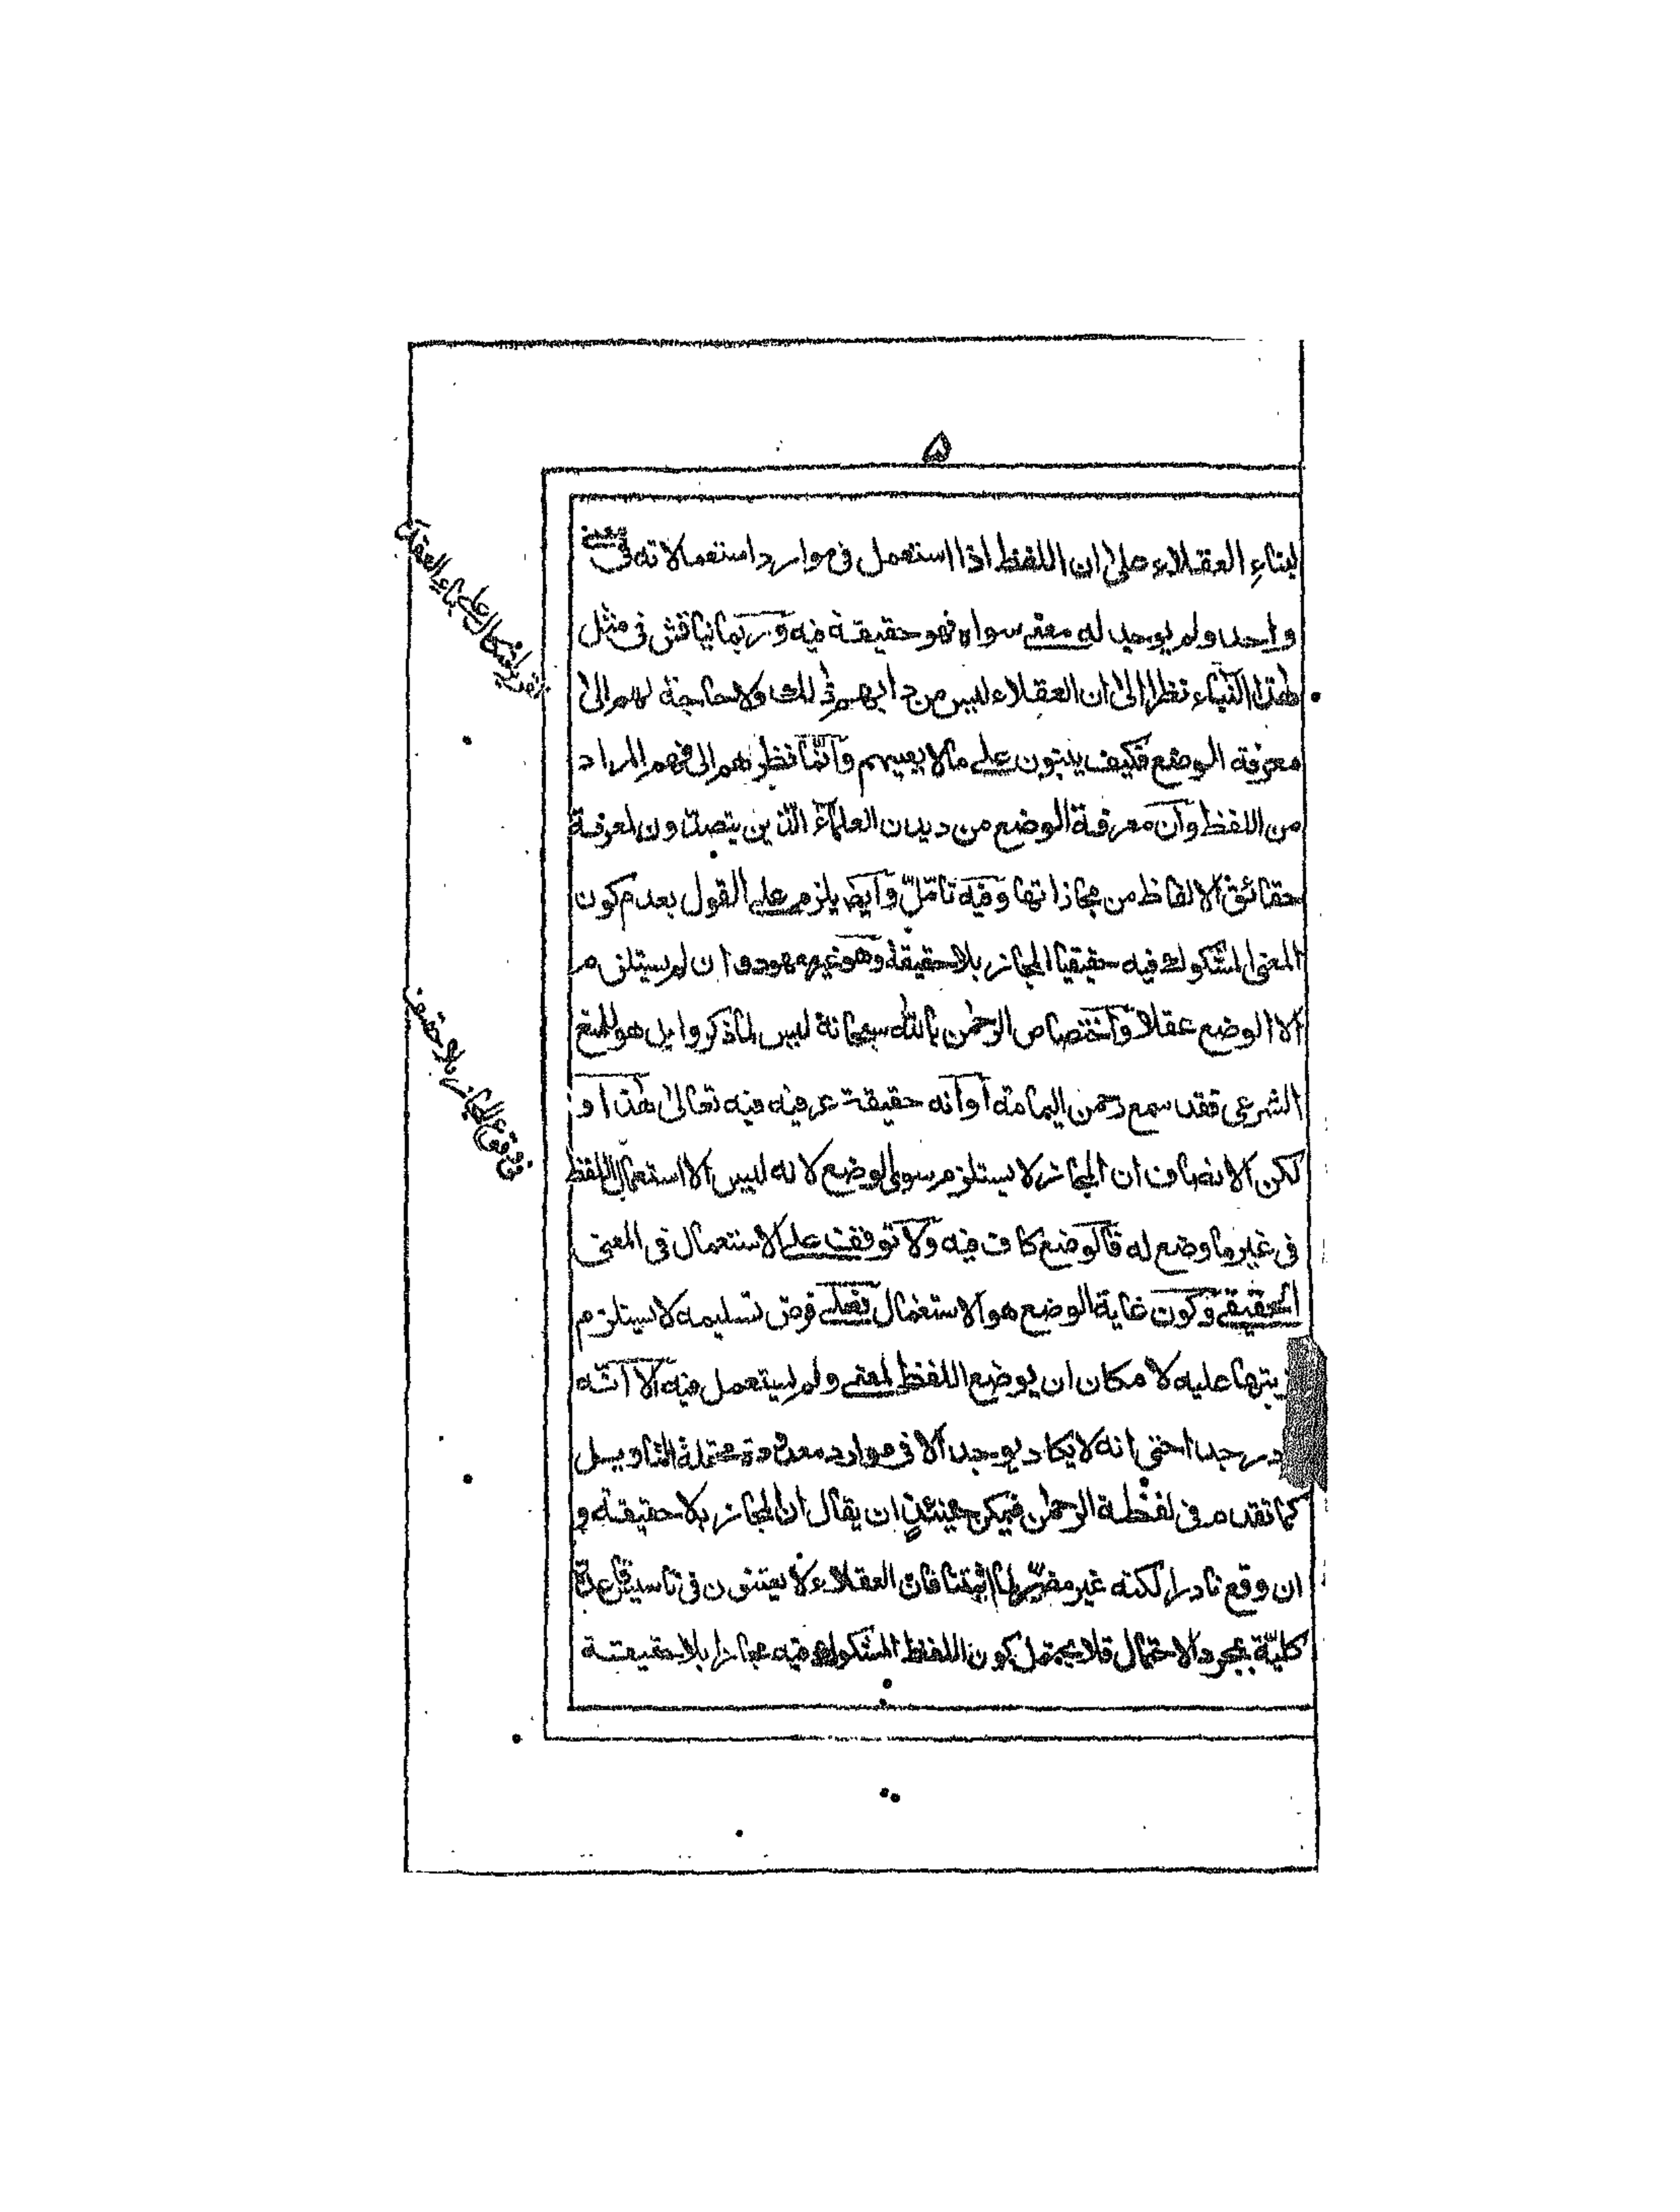 ۵
لبناءِ العقلاء على ان اللفظ اذا استعمل فى موارد استعمالاته فى معنے
واحد ولم يوجد له معنے سواه فهو حقيقة فيه وربما يناقش فى مثل
هذا البناء نظرا الى ان العقلاء ليس من دابهم ذلك ولا حاجة لهم الى
معرفة الوضع فكيف يبنون علے مالا يعنيهم وانّما نظرهم الى فهم المراد
من اللفظ وان معرفة الوضع من ديدن العلمآء الّذين يتصدّون لمعرفة
حقائق الالفاظ من مجازاتها وفيه تامّل وايضًا يلزم علے القول بعدم كون
المعنى المشكوك فيه حقيقيا المجاز بلا حقيقة وهو غير معهود وان لم يستلزم
الا الوضع عقلا واختصاص الرحمٰن بالله سبحانه ليس لما ذكروا بل هو للمنع
الشرعى فقد سمع رحمن اليمامة او انه حقيقة عرفيه فيه تعالىٰ هذا و
لكن الانصاف ان المجاز لا يستلزم سوى الوضع لانه ليس الا استعمال اللفظ
فى غير ما وضع له فالوضع كاف فيه ولا توقف علے الاستعمال فى المعنى
الحقيقے وكون غاية الوضع هو الاستعمال فعلے فرض تسليمه لا يستلزم
ترتبها عليه لامكان ان يوضع اللفظ لمعنے ولم يستعمل فيه الا انّه
در جدا حتى انه لا يكاد يوجد الا فى موارد معدودة محتملة التاويل
كما تقدم فى لفظة الرحمٰن فيمكن حينئذٍ ان يقال ان المجاز بلا حقيقة و
ان وقع نادرا لكنه غير مضرّ لما اثبتنا فان العقلاء لا يعتنون فى تاسيس قاعدة
كليّة بمجرد الاحتمال فلا يحتمل كون اللفظ المشكوك فيه مجازا بلا حقيقة
اشكال على بناء العقلاء
فى وقوع المجاز بلا حقيقة